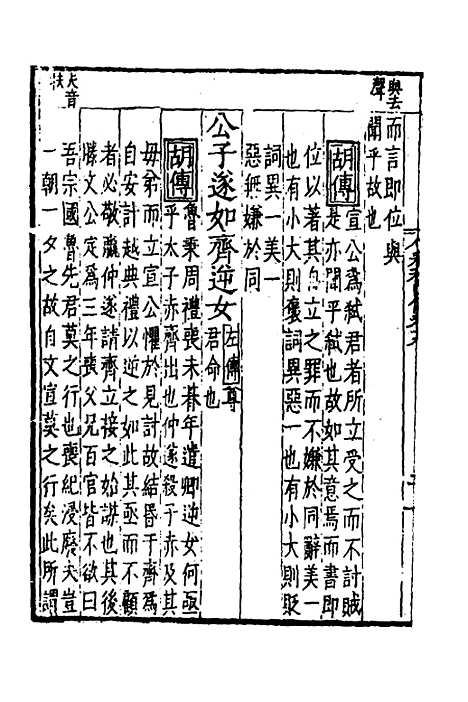 與去
聲
而言即位與
聞乎故也
胡傳 宣公爲弒君者所立受之而不討賊
是亦聞乎弒也故如其意焉而書即
位以著其自立之罪而不嫌於同辭美一
也有小大則褒詞異惡一也有小大則貶
詞異一美一
惡無嫌於同
公子遂如齊逆女 左傳尊
君命也
胡傳 魯秉周禮喪未朞年遣卿逆女何亟
乎太子赤齊出也仲遂殺子赤及其
母弟而立宣公懼於見討故結昏于齊爲
自安計越典禮以逆之如此其亟而不顧
者必敬嬴仲遂請齊立接之始謀也其後
滕文公定爲三年喪父兄百官皆不欲曰
吾宗國魯先君莫之行也喪紀浸廢夫豈
一朝一夕之故自文宣莫之行矣此所謂
夫音
扶